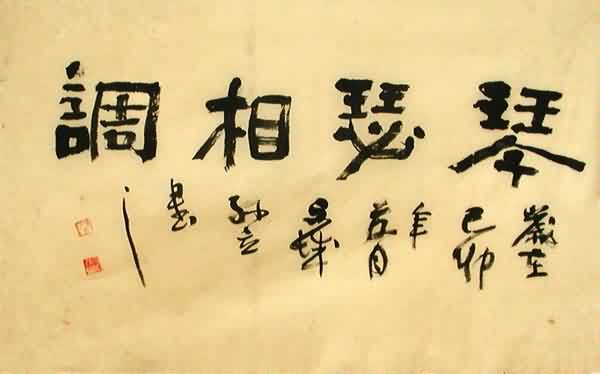 琴瑟相調
歲在
己卯
年
五月
書